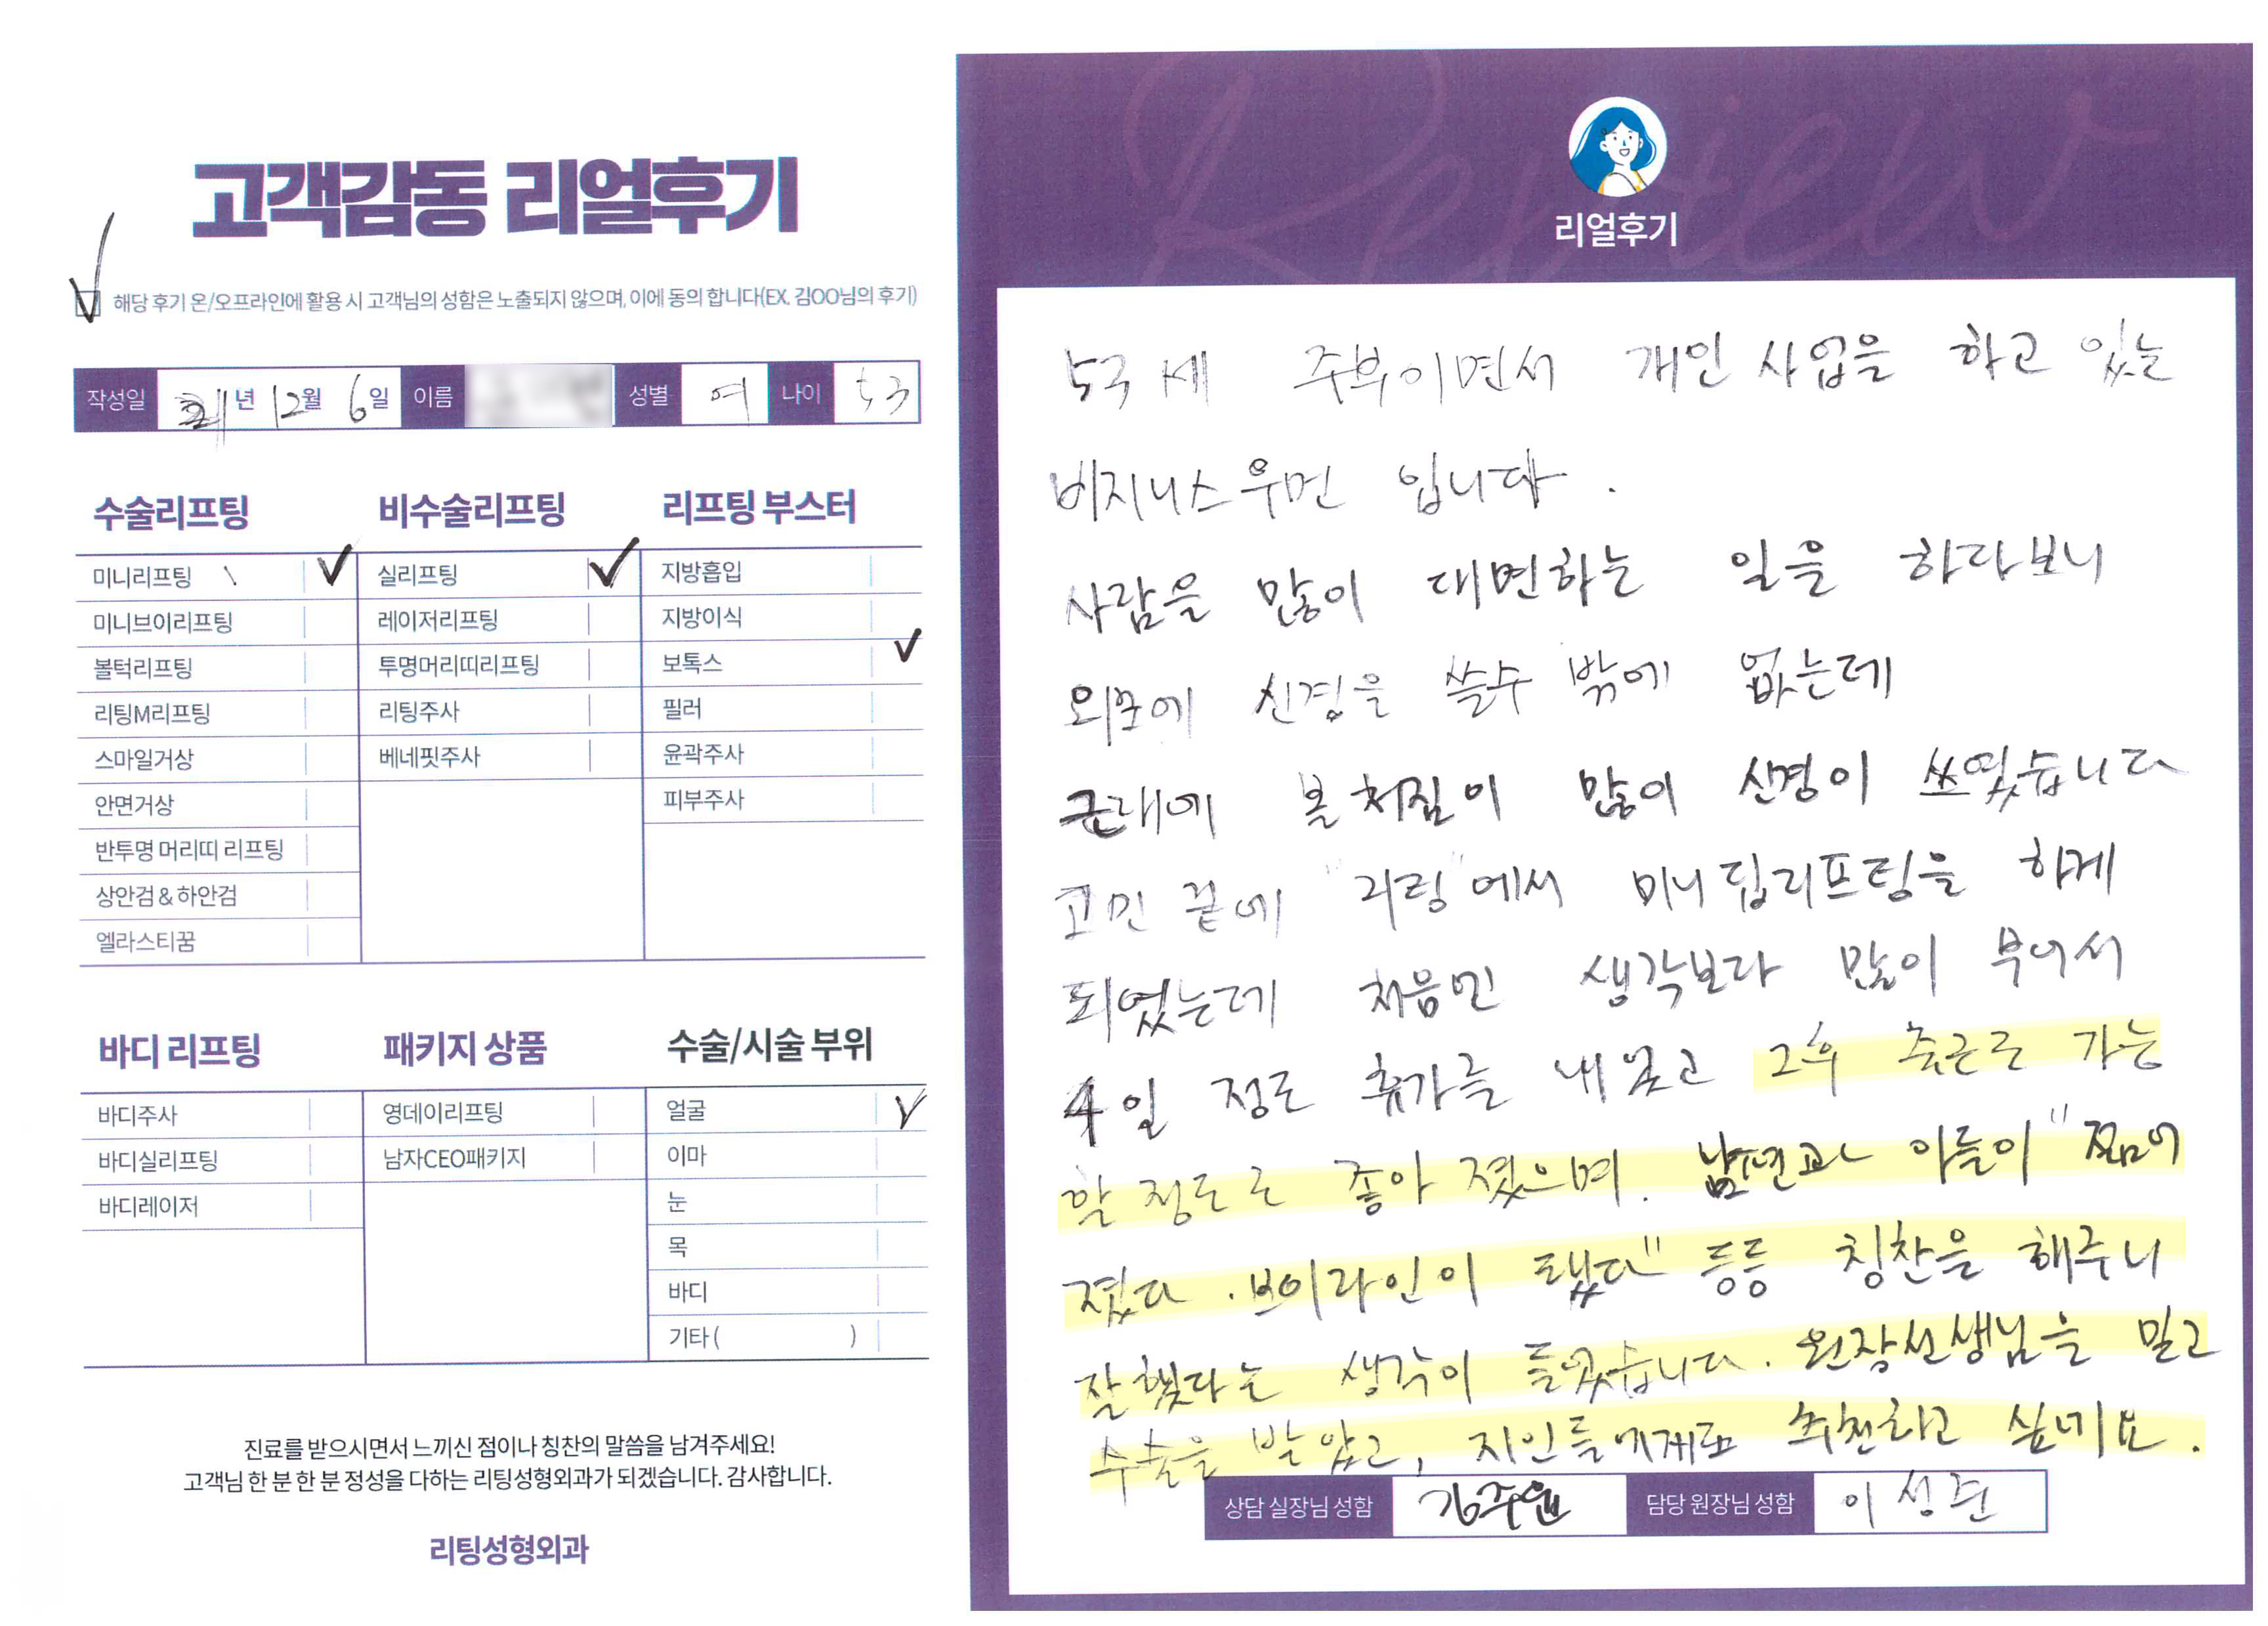 고객감동 리얼후기
해당 후기 온/오프라인에 활용 시 고객님의 성함은 노출되지 않으며, 이에 동의 합니다(EX. 김OO님의 후기)
작성일 년 12월 6일 이름 성별 여 나이 53
수술리프팅
미니리프팅
미니브이리프팅
볼턱리프팅
리팅M리프팅
스마일거상
안면거상
반투명 머리띠 리프팅
상안검 & 하안검
엘라스티꿈
비수술리프팅
실리프팅
레이저리프팅
투명머리띠리프팅
리팅주사
베네핏주사
리프팅 부스터
지방흡입
지방이식
보톡스
필러
윤곽주사
피부주사
바디 리프팅
바디주사
바디실리프팅
바디레이저
패키지 상품
영데이리프팅
남자CEO패키지
수술/시술 부위
얼굴
이마
눈
목
바디
기타 ( )
진료를 받으시면서 느끼신 점이나 칭찬의 말씀을 남겨주세요!
고객님 한 분 한 분 정성을 다하는 리팅성형외과가 되겠습니다. 감사합니다.
리팅성형외과
Review
리얼후기
53세 주부이면서 개인 사업을 하고 있는
비지니스우먼 입니다.
사람을 많이 대면하는 일을 하다보니
외모에 신경을 쓸수 밖에 없는데
근래에 볼처짐이 많이 신경이 쓰였습니다
고민 끝에 "리팅"에서 미니딥리프팅을 하게
되었는데 처음엔 생각보다 많이 부어서
4일 정도 휴가를 내었고 그후 출근로 가능
할 정도로 좋아 졌으며. 남편과 아들이 "젊어
졌다. 브이라인이 됐다" 등등 칭찬을 해주니
잘했다는 생각이 들었습니다. 원장선생님을 믿고
수술을 받았고, 지인들에게도 추천하고 싶네요.
상담 실장님 성함 김주연 담당 원장님 성함 이성준